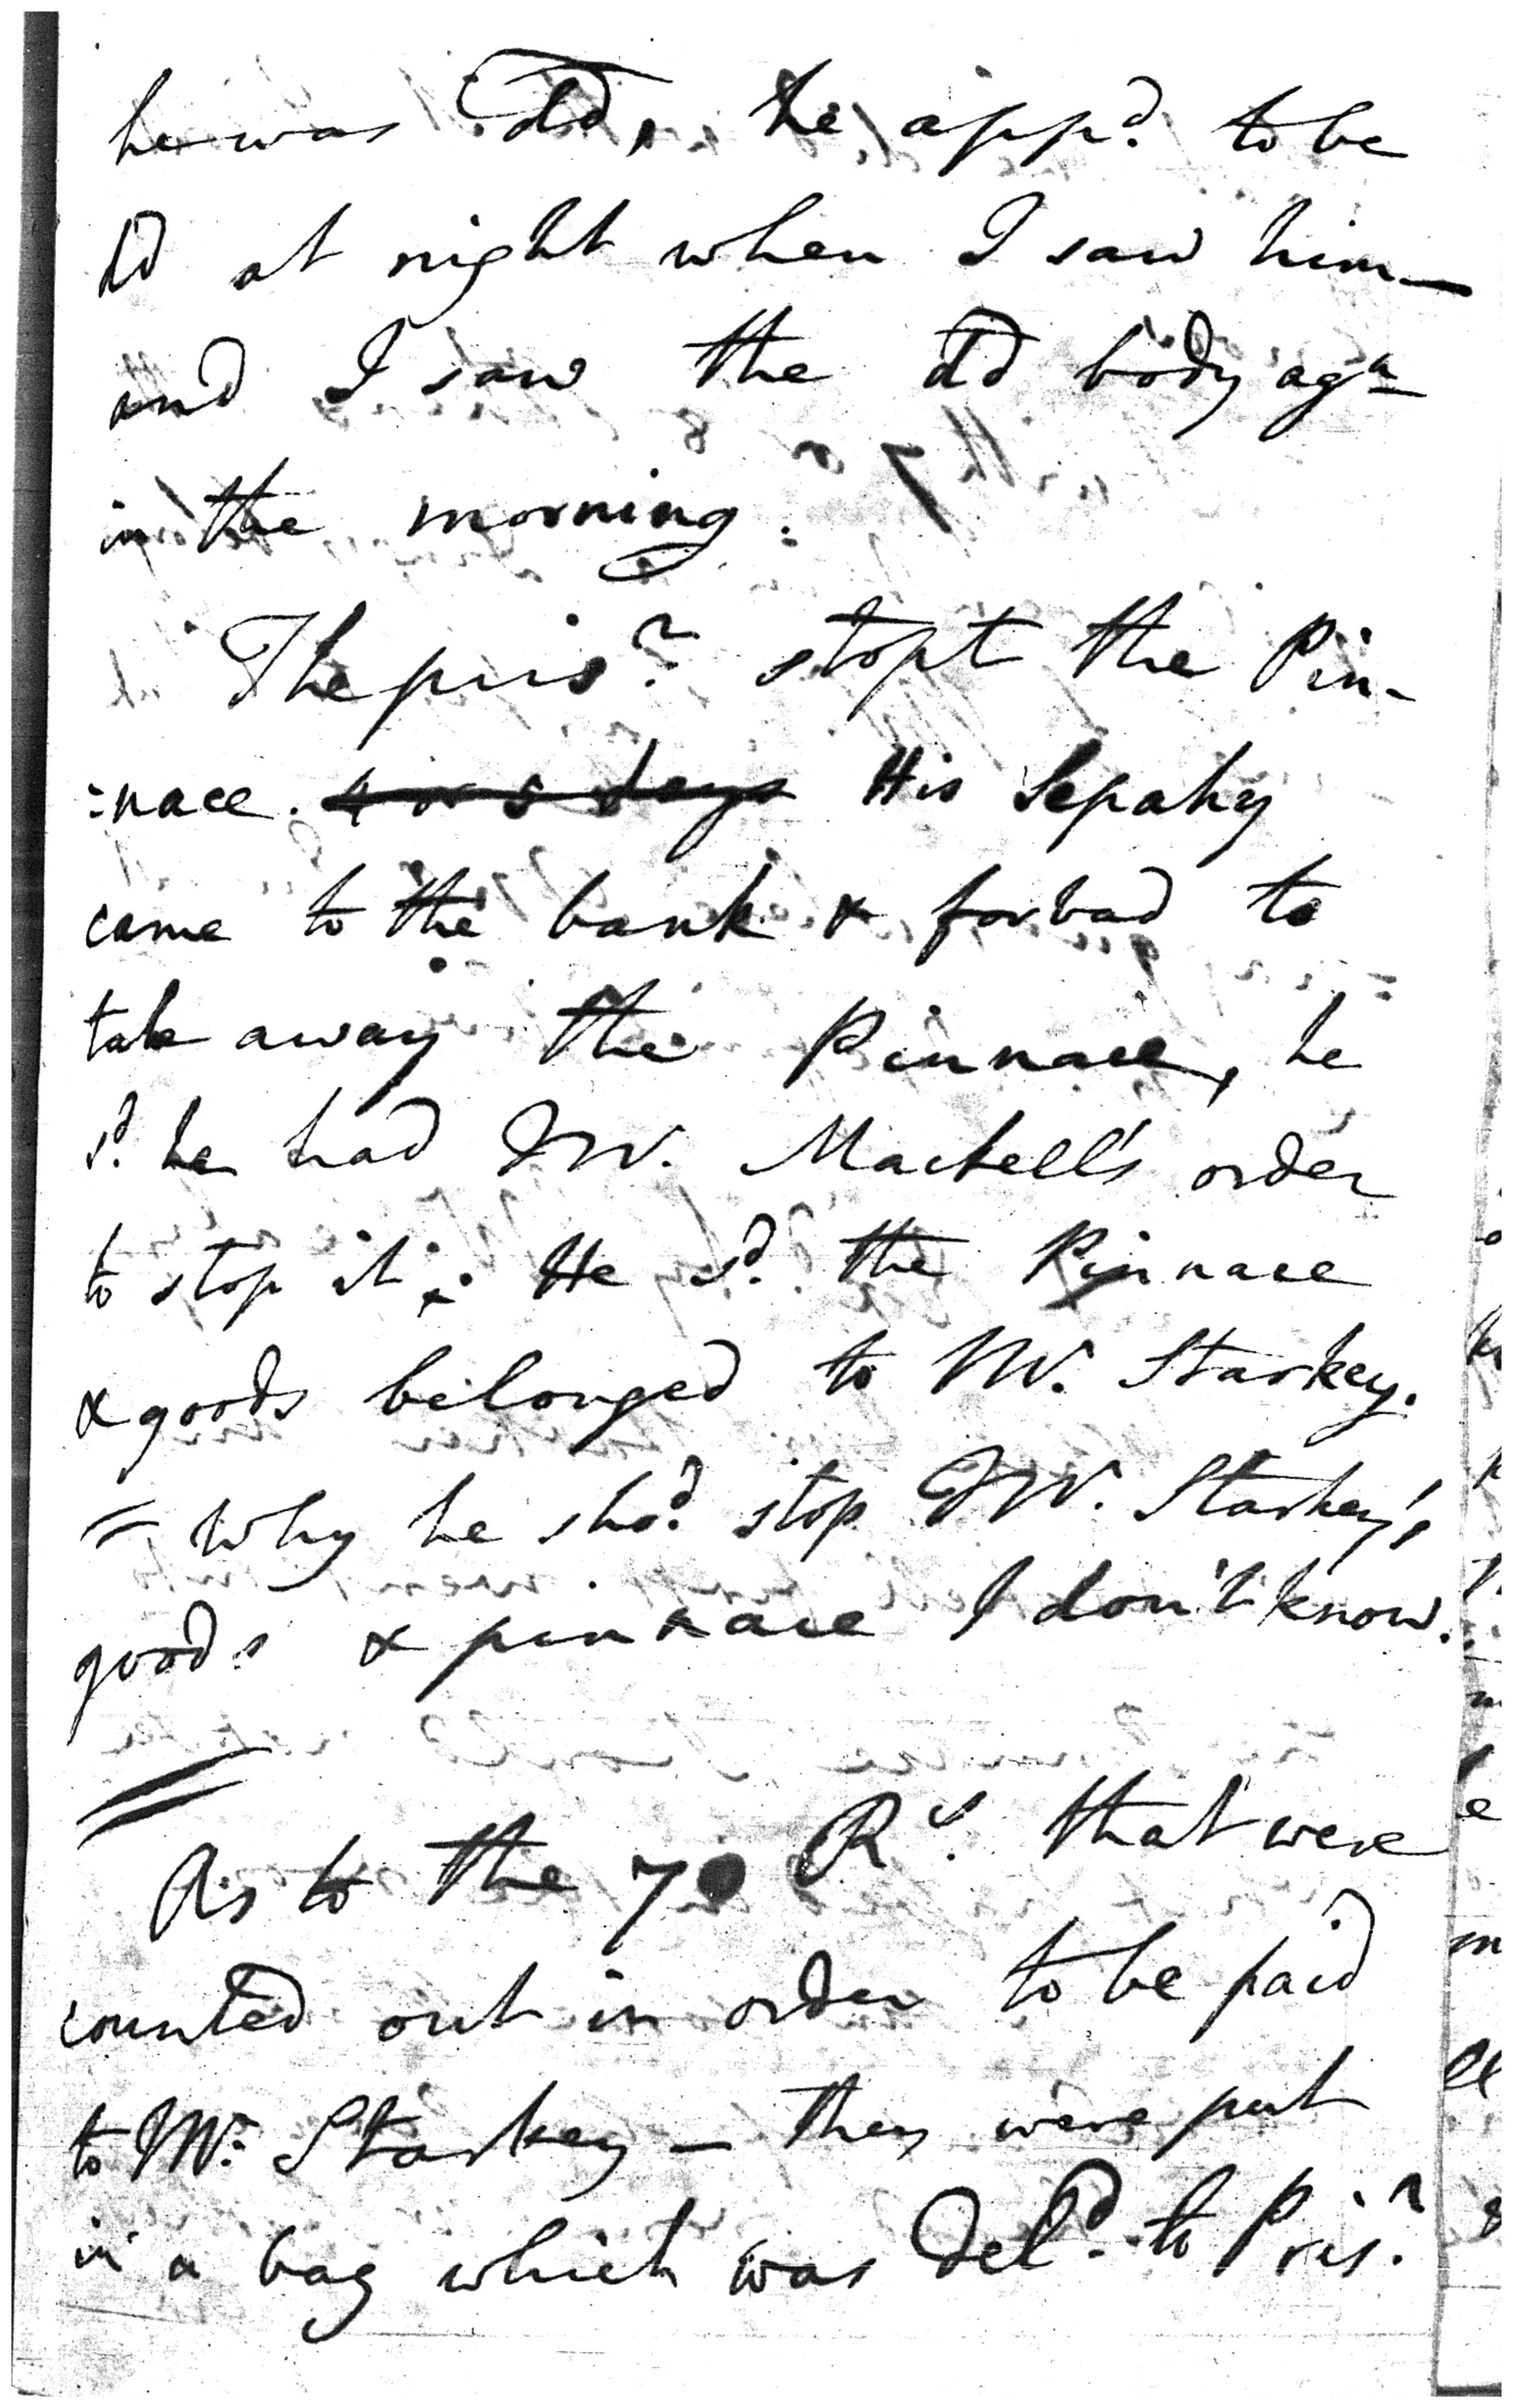 he was dd, he app^d. to be
dd at night when I saw him —
and I saw the dd body ag^n
in the morning.
The pris^r. stopt the Pin-
:nace. ~~4 or 5 days~~ His Sepahy
came to the bank & forbad to
take away the Pinnace, he
s^d. he had M^r. Machell's order
to stop it. He s^d. the Pinnace
& goods belonged to M^r. Starkey.
= Why he sho^d. stop M^r. Starkey's
goods & pinnace I don't know.
As to the 70 R^s. that were
counted out in order to be paid
to M^r. Starkey — they were put
in a bag which was del^d. to Pris^r.